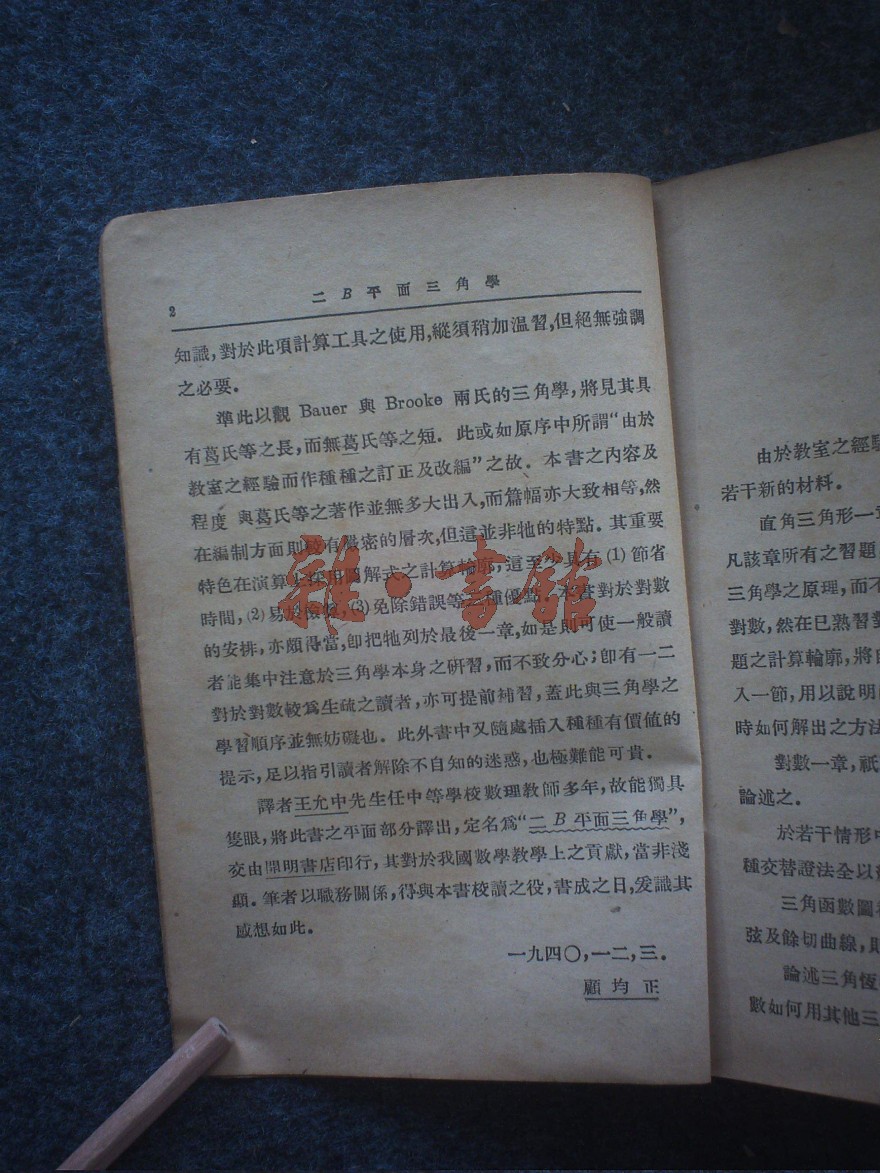 2
二B平面三角學
知識，對於此項計算工具之使用，縱須稍加温習，但絕無強調
之必要．
準此以觀 Bauer 與 Brooke 兩氏的三角學，將見其具
有葛氏等之長，而無葛氏等之短．此或如原序中所謂“由於
教室之經驗而作種種之訂正及改編”之故．本書之內容及
程度與葛氏等之著作並無多大出入，而篇幅亦大致相等，然
在編制方面則較有嚴密的層次，但這並非牠的特點．其重要
特色在演算上採用圖解式之計算輪廓，這至少具有 (1) 節省
時間，(2) 易於檢驗，(3) 免除錯誤等三種優點．本書對於對數
的安排，亦頗得當，卽把牠列於最後一章，如是則可使一般讀
者能集中注意於三角學本身之研習，而不致分心；卽有一二
對於對數較爲生硫之讀者，亦可提前補習，蓋此與三角學之
學習順序並無妨礙也．此外書中又隨處插入種種有價値的
提示，足以指引讀者解除不自知的迷惑，也極難能可貴．
譯者王允中先生任中等學校數理教師多年，故能獨具
隻眼，將此書之平面部分譯出，定名爲“二B平面三角學”，
交由開明書店印行，其對於我國數學教學上之貢獻，當非淺
顯．筆者以職務關係，得與本書校讀之役，書成之日，爰識其
感想如此．
一九四〇，一二，三．
顧均正
由於教室之經驗
若干新的材料．
直角三角形一章
凡該章所有之習題
三角學之原理，而不
對數，然在已熟習對
題之計算輪廓，將
入一節，用以說明
時如何解出之方法
對數一章，祇
論述之．
於若干情形中
種交替證法全以
三角函數圖
弦及餘切曲線，則
論述三角恆
數如何用其他三
雜·書館